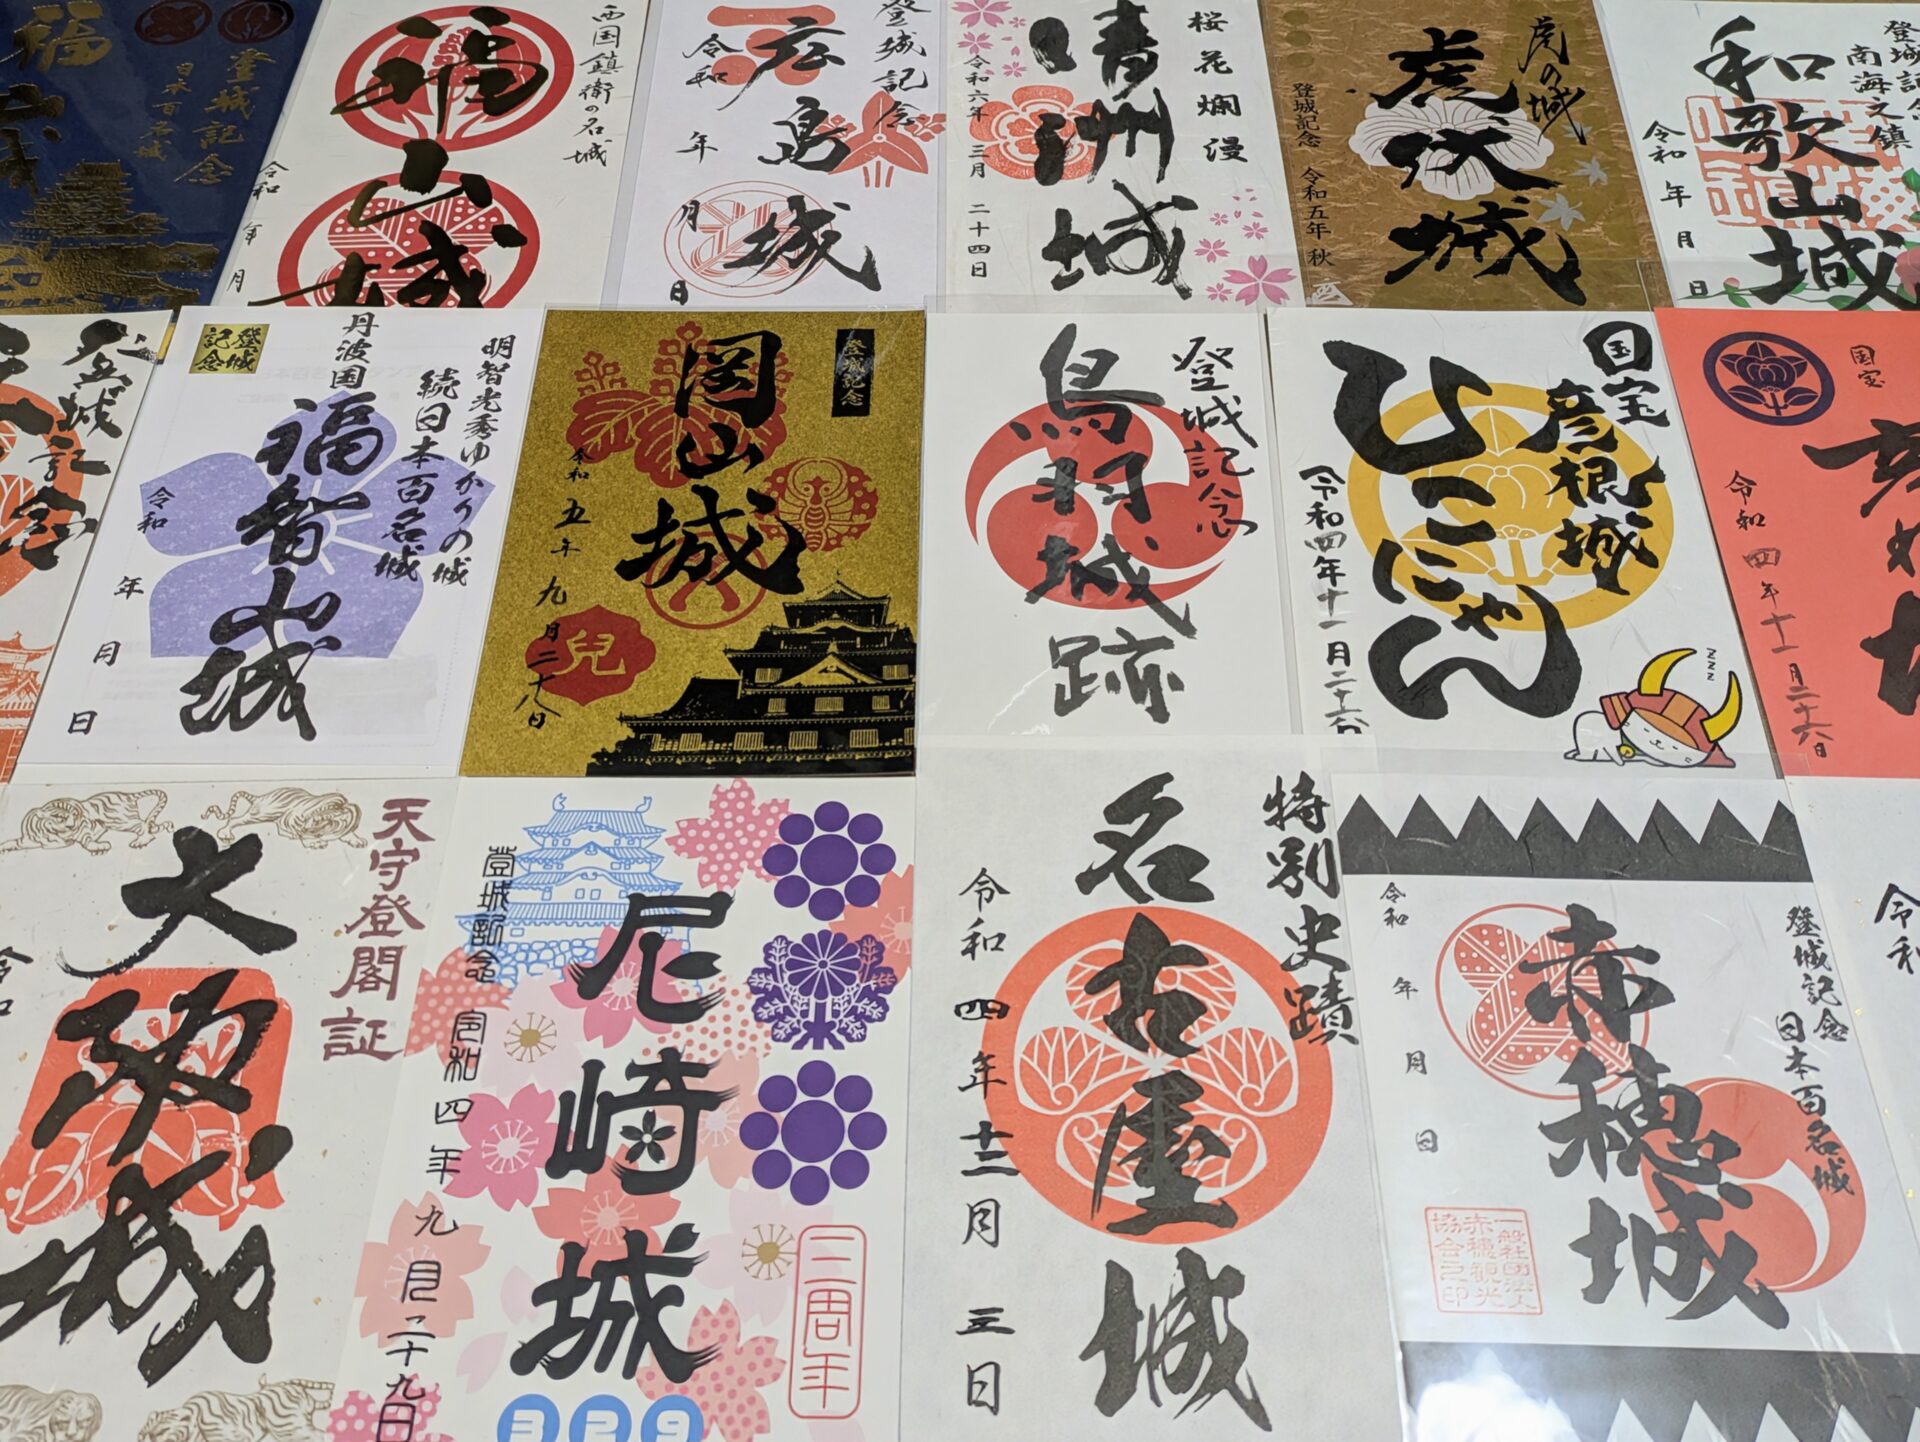 福
登城記念
日本百名城
福山城
西国鎮衛の名城
令和
年
月
登城記念
広島城
令和
年
月
日
桜花爛漫
清洲城
令和六年三月二十四日
虎の城
虎伏城
登城記念
令和五年秋
登城記念
南海之鎮
和歌山城
令和
年
月
日
登城記念
登城
記念
明智光秀ゆかりの城
続日本百名城
丹波国
福智山城
令和
年
月
日
登城記念
岡山城
令和五年九月二十八日
兒
登城記念
鳥羽城跡
国宝
彦根城
ひこにゃん
令和四年十一月二十六日
zzz
国宝
令和四年十一月二十六日
天守登閣証
大阪城
令和
登城記念
尼崎城
令和四年九月二十九日
三周年
特別史蹟
名古屋城
令和四年十二月三日
登城記念
日本百名城
赤穂城
令和
年
月
日
一般社団法人
赤穂観光
協会之印
令和